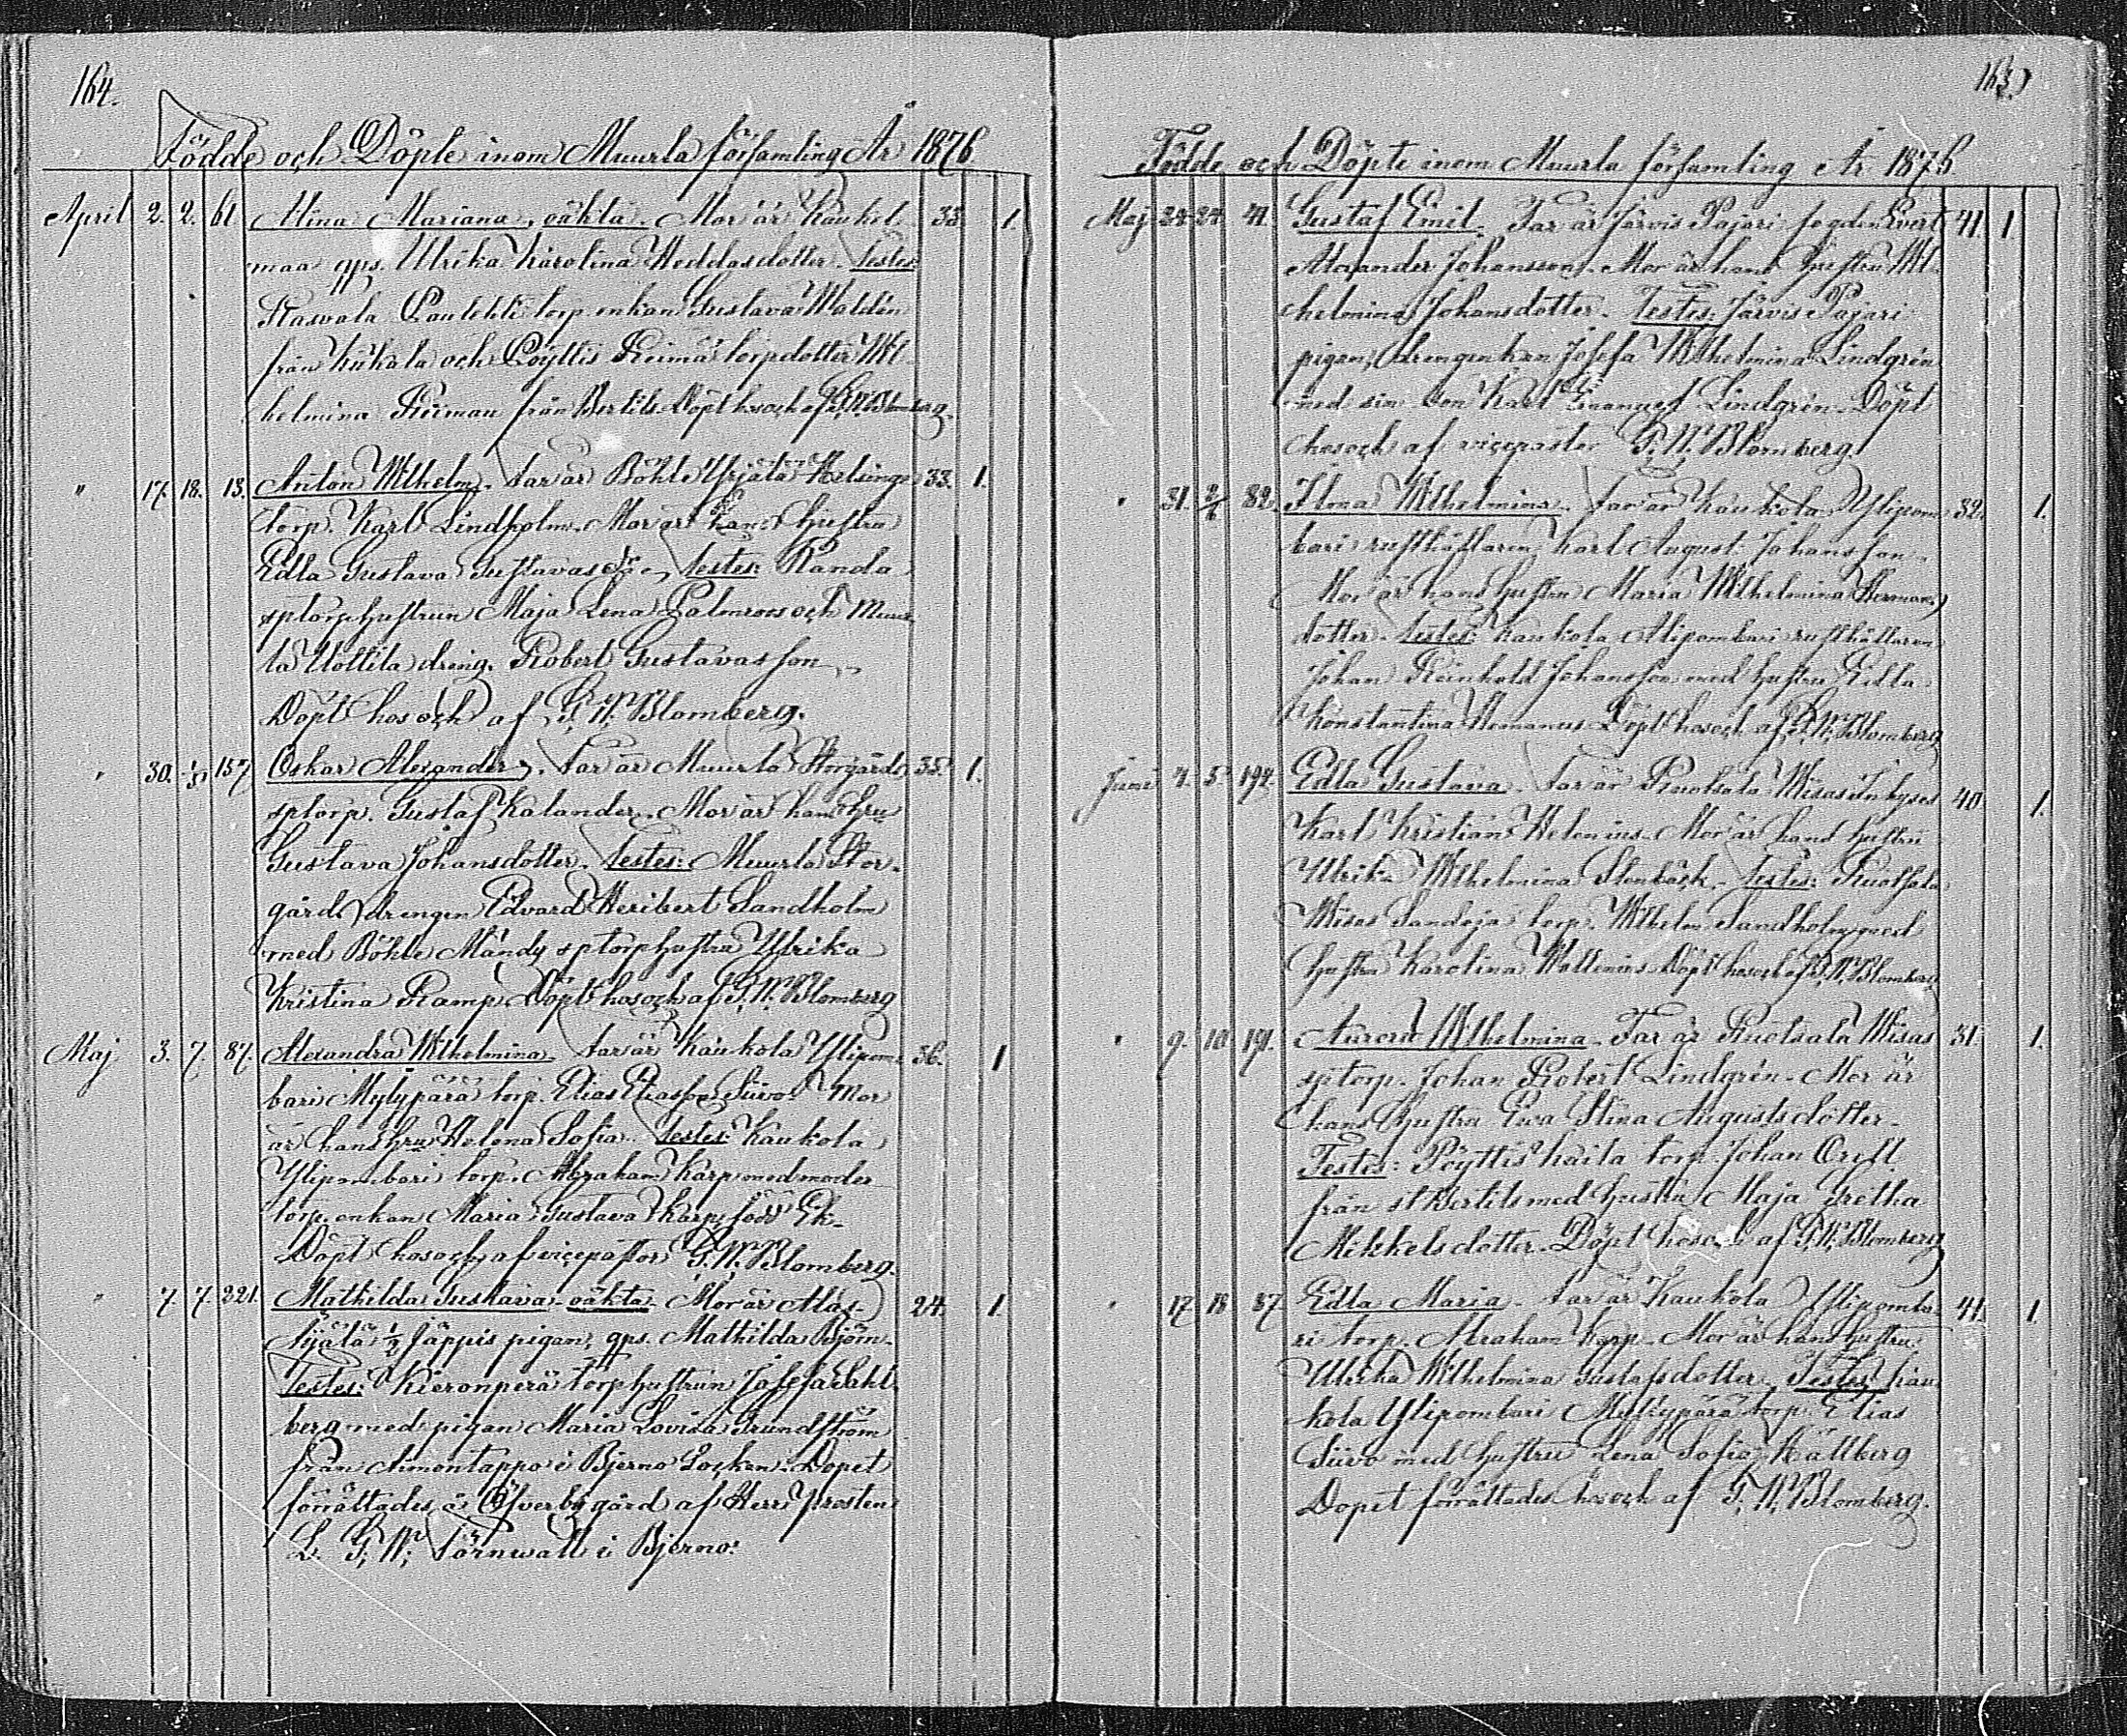 164.
Födde och Döpte inom Muurla församling År 1876
April 2. 2. 61 Alina Mariana, oäkta. Mor är Kaukel- 33. 1.
maa qps. Ulrika Karolina Heddasdotter. Testes
Stasvala torp. enkan Gustava Waldén
från och Pöyttis torpdotter Wil-
helmina från Bertils. Döpt hos och af G. W. Blomberg.
" 17. 18. 13. Anton Wilhelm. Far är Böhle Yrjälä Helsinge 33. 1.
torp. Karl Lindholm. Mor är hans Hustru
Edla Gustava Gustavasdr. Testes: Randa
sptorphustrun Maja Lena Palmroos och Muur-
la Uottila dräng. Robert Gustavasson
Döpt hos och af G. W. Blomberg.
" 30. 1/5 157 Oskar Alexander. Far är Muurla Storgårds 35. 1.
sptorp. Gustaf Kalander. Mor är hans Hru
Gustava Johansdotter. Testes: Muurla Stor-
gårds drengen Edvard Heribert Sandholm
med Böhle Mändy sptorphustru Ulrika
Kristina Ramp. Döpt hos och af G. W. Blomberg
Maj 3. 7. 87. Alexandra Wilhelmina. Far är Kaukola Ylipom- 36. 1
bari Myllypärä torp. Elias Eliasson Siivo. Mor
är hans hru Helena Sofia. Testes: Kaukola
Ylipombari torp. Abraham Karp med moder
torp. enkan Maria Gustava Karp, född Ek-
Döpt hos och af vicepastor G. W. Blomberg.
" 7. 7. 221. Mathilda Gustava. oäkta. Mor är Alas- 24. 1.
kjälä 1/2 Jäppis pigan, qps. Mathilda Björn-
Testes: Kieronperä torphustrun Josefa Sahl-
berg med pigan Maria Lovisa Grundström
från Aimontappo i Bjerno Socken. Dopet
förrättades å Öfverbygård af Herr Prosten
L. G. W. Törnwall i Bjerno.
165.
Födde och Döpte inom Muurla församling År 1876
Maj 24. 24. 41. Gustaf Emil. Far är Järvis Pajari fogden Evert 41. 1.
Alexander Johansson. Mor är hans Hustru Wil-
helmina Johansdotter. Testes: Järvis Pajari
pigan, drengenkan Josefa Wilhelmina Lindgrén
med sin son Karl Emanuel Lindgrén. Döpt
hos och af vicepastor G. W. Blomberg
" 31. 2/6 82. Ilma Wilhelmina. Far är Kaukola Ylipom- 32. 1.
bari rusthållaren Karl August Johansson.
Mor är hans hustru Maria Wilhelmina Hermans-
dotter. Testes: Kaukola Alipombari rusthållaren
Johan Reinhold Johansson med hustru Edla
Konstantina Hemanus. Döpt hos och af G. W. Blomberg
Juni 4. 5. 194. Edla Gustava. Far är Ruotsala Wisas Inhyses 40 1.
Karl Kristian Helenius. Mor är hans hustru
Ulrika Wilhelmina Stenbäck. Testes: Ruotsala
Wisas Sandoja torp. Wilhelm Sandholm med
hustru Karolina Wallenius. Döpt hos och af G. W. Blomberg
" 9. 10 191. Aurora Wilhelmina. Far är Ruotsala Wisas 31. 1.
sptorp. Johan Robert Lindgrén. Mor är
hans hustru Eva Stina Augustsdotter.
Testes: Pöyttis haila torp. Johan Orell
från St Bertils med hustru Maja Gretha
Mikkelsdotter. Döpt hos och af G. W. Blomberg
" 17 18 87 Edla Maria. Far är Kaukola Ylipomba- 41. 1.
ri torp. Abraham Karp. Mor är hans hustru
Ulrika Wilhelmina Gustafsdotter. Testes: Kau-
kola Ylipombari Myllypärä torp. Elias
Siivo med hustru Lena Sofia Hällberg
Dopet förrättades hos och af G. W. Blomberg.